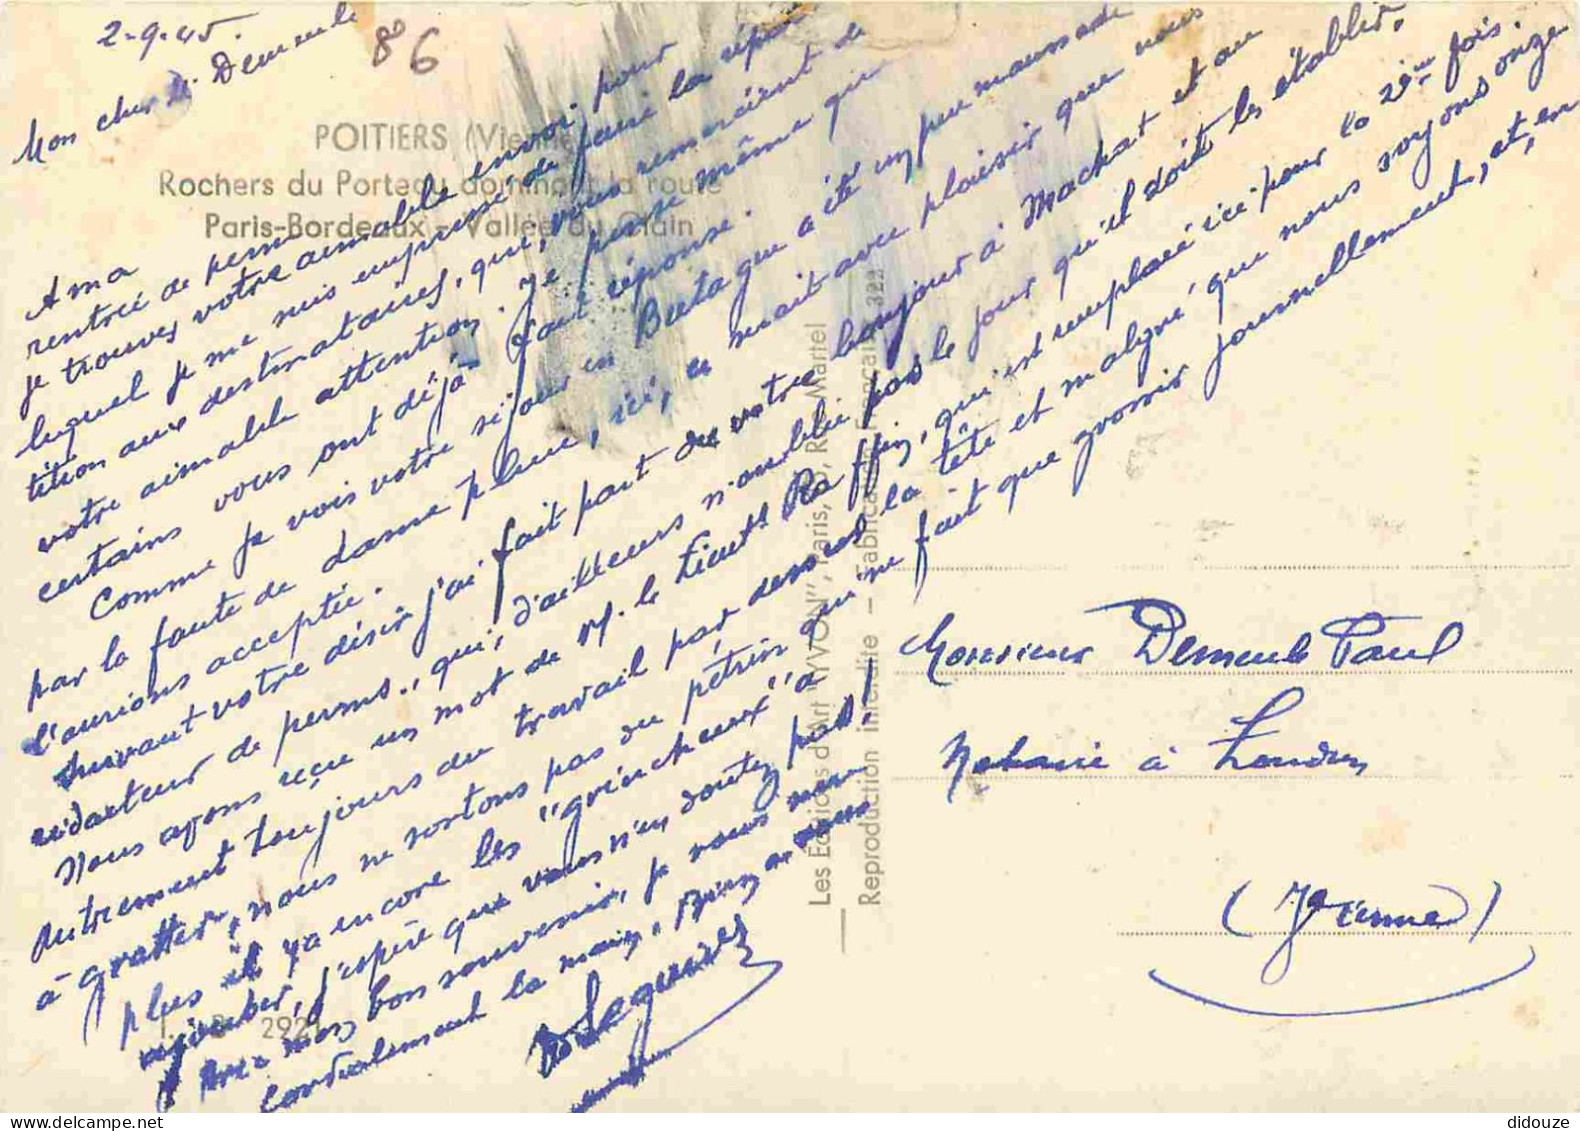 2-9-45.
86
Mon cher Demeule
POITIERS (Vienne)
Rochers du Porteau dominant la route
Paris-Bordeaux - Vallée du Clain
A ma
rentrée de perme
je trouve votre aimable envoi pour
lequel je me suis empressé de faire la répar
tition aux destinataires, qui, vous remercient de
votre aimable attention. Je pense même que
certains vous ont déjà fait réponse.
Comme je vois votre séjour en Bretagne a été un peu maussade
par la faute de dame pluie, ici, ce serait avec plaisir que nous
l'aurions acceptée.
Suivant votre désir j'ai fait part de votre bonjour à Machat et au
rédacteur de perms., qui, d'ailleurs n'oublie pas le jour qu'il doit les établir.
Nous avons reçu un mot de M. le Lieut! Raffin, qui est remplacé ici pour la 2ème fois.
Autrement toujours du travail par dessus la tête et malgré que nous soyons onze
à gratter, nous ne sortons pas du pétrin qui ne fait que grossir journellement, et, en
plus il y a encore les "grincheux" à
, j'espère que vous n'en doutez pas!
Avec mon bon souvenir, je vous serre
cordialement la main. Bien à vous
Les Editions d'Art "YVON", Paris, 15, Rue Martel
Reproduction interdite - Fabrication Française 322
Monsieur Demeule Paul
Notaire à Loudun
(Vienne)
2921